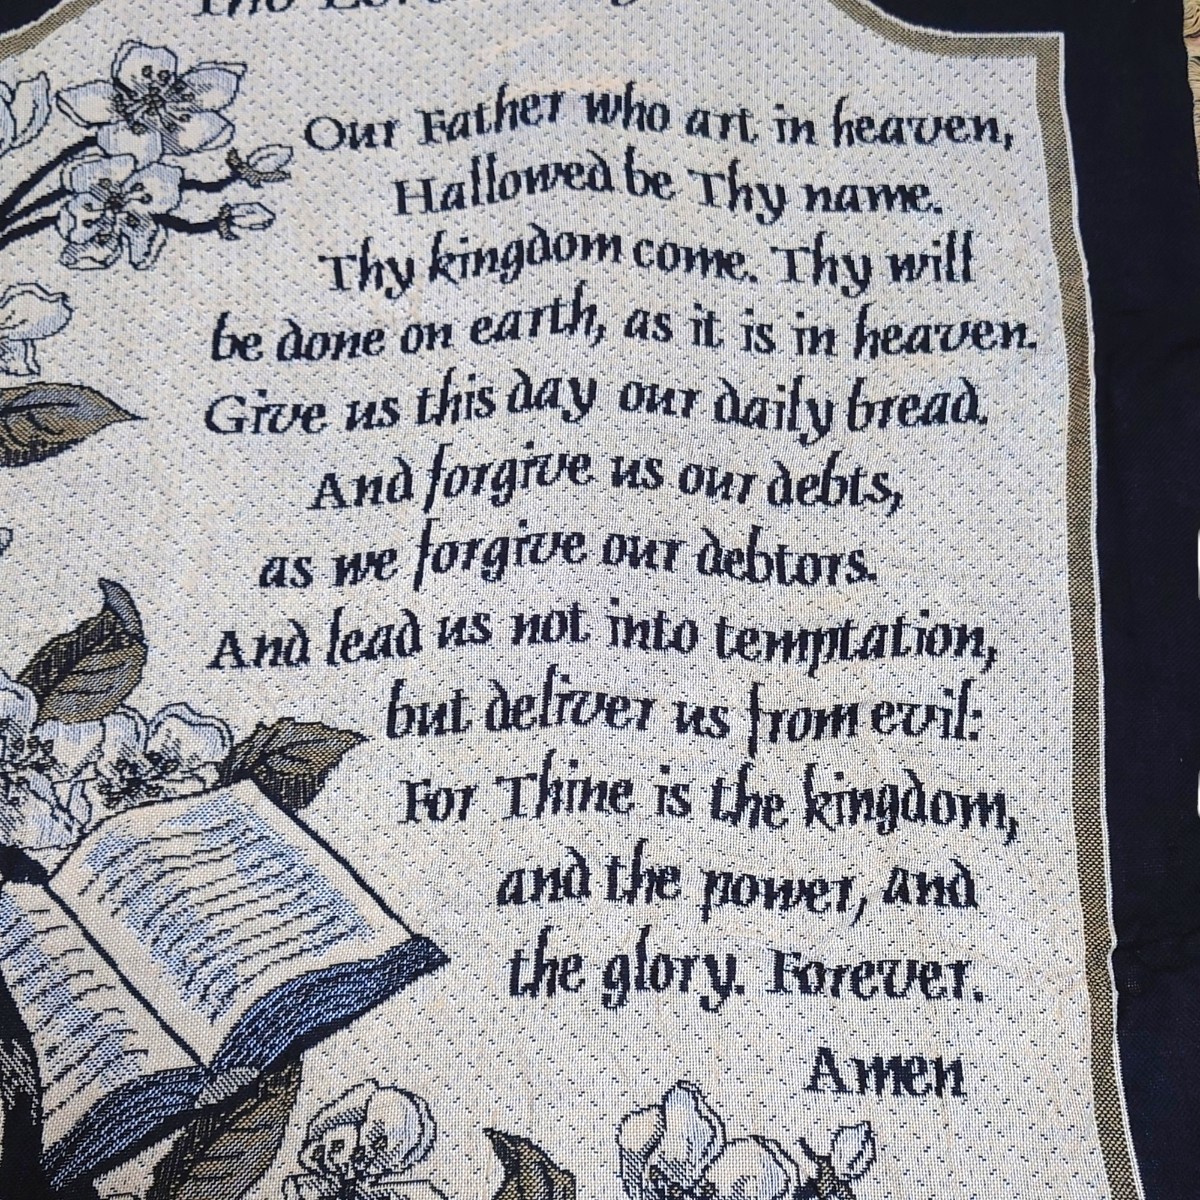 The Lord's
Our Father who art in heaven,
Hallowed be Thy name.
Thy kingdom come. Thy will
be done on earth, as it is in heaven.
Give us this day our daily bread.
And forgive us our debts,
as we forgive our debtors.
And lead us not into temptation,
but deliver us from evil:
For Thine is the kingdom,
and the power, and
the glory. Forever.
Amen